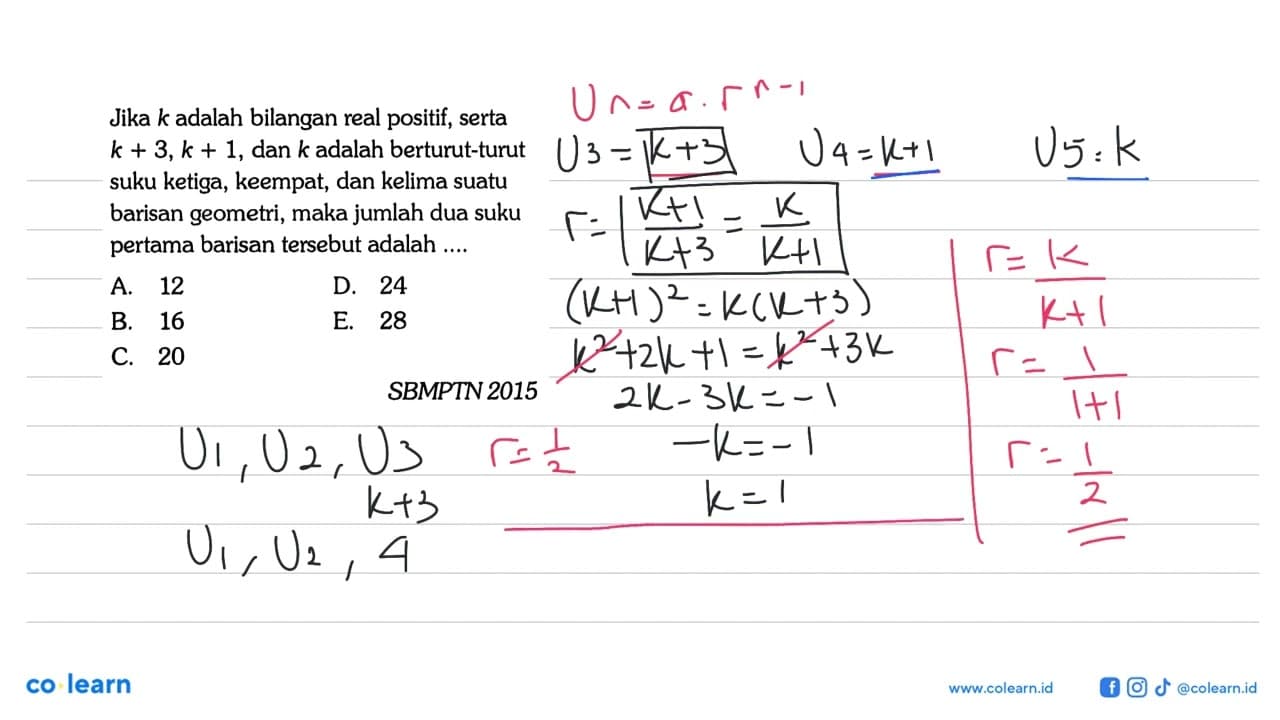 Jika k adalah bilangan real positif, serta
k + 3, k + 1, dan k adalah berturut-turut
suku ketiga, keempat, dan kelima suatu
barisan geometri, maka jumlah dua suku
pertama barisan tersebut adalah ....
A. 12
B. 16
C. 20
D. 24
E. 28
SBMPTN 2015
Un = a . r^n-1
U3 = k+3 U4 = k+1 U5 = k
r = k+1/k+3 = k/k+1
(k+1)² = k(k+3)
k²+2k+1 = k²+3k
2k-3k = -1
-k = -1
k = 1
r = k/k+1
r = 1/1+1
r = 1/2
U1, U2, U3 r = 1/2
k+3
U1, U2, 4
co learn
www.colearn.id
@colearn.id